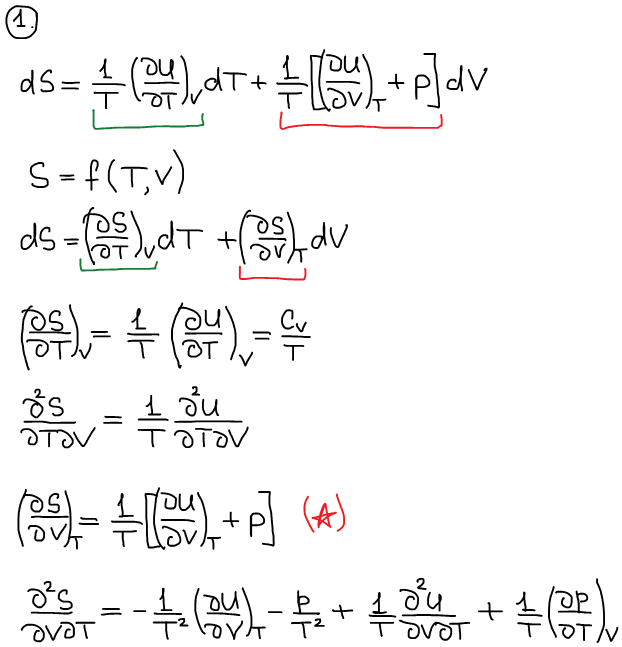 1.
dS = 1/T (∂U/∂T)_V dT + 1/T [(∂U/∂V)_T + P] dV
S = f(T, V)
dS = (∂S/∂T)_V dT + (∂S/∂V)_T dV
(∂S/∂T)_V = 1/T (∂U/∂T)_V = C_V/T
∂²S/∂T∂V = 1/T ∂²U/∂T∂V
(∂S/∂V)_T = 1/T [(∂U/∂V)_T + P] (☆)
∂²S/∂V∂T = - 1/T² (∂U/∂V)_T - P/T² + 1/T ∂²U/∂V∂T + 1/T (∂P/∂T)_V